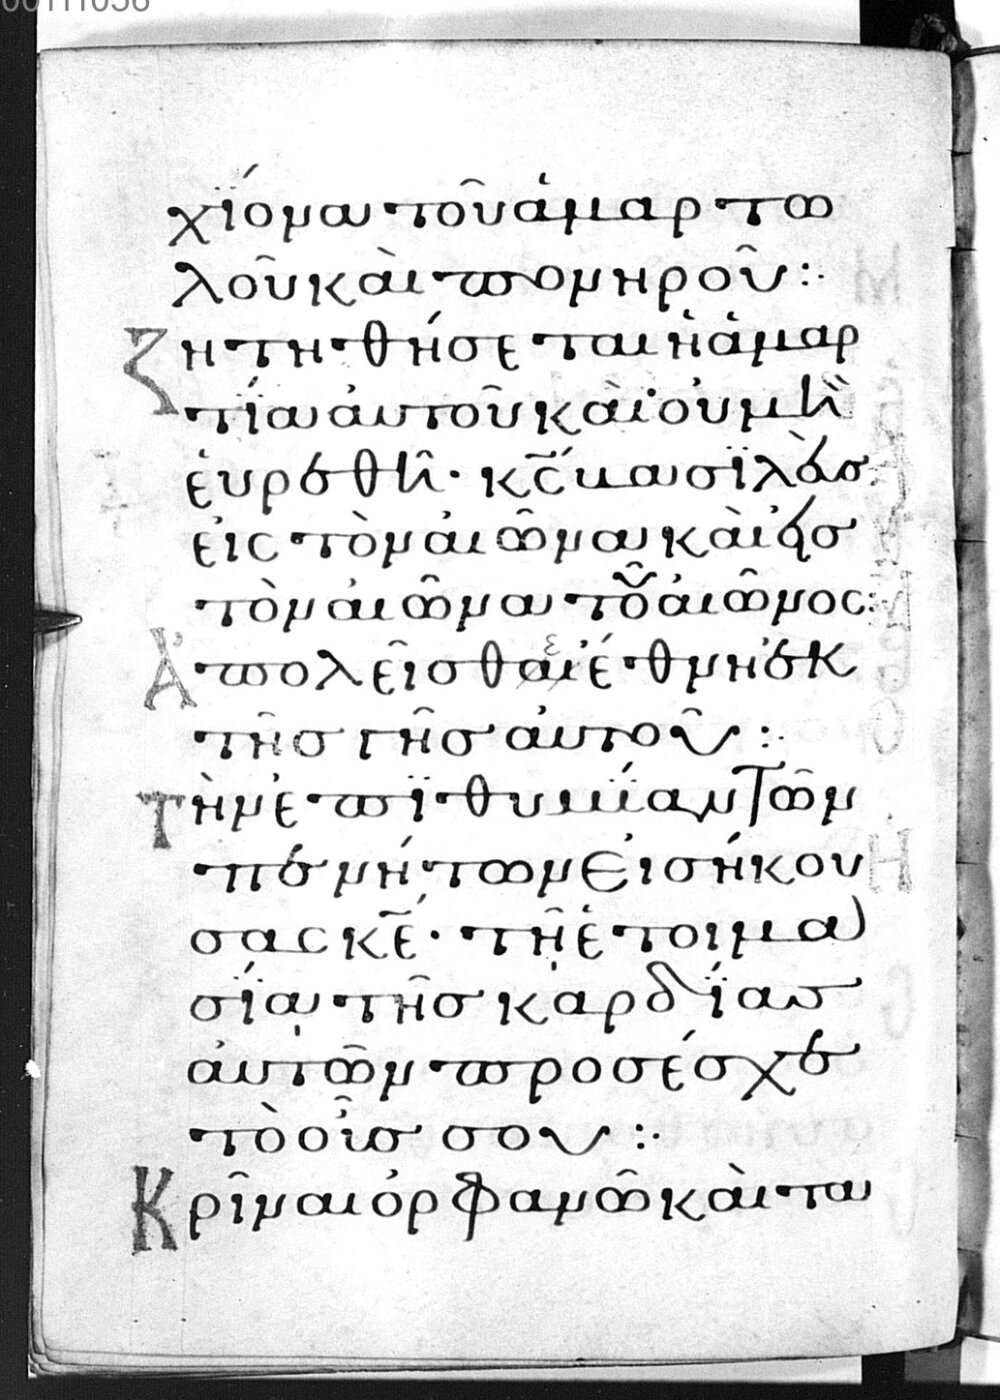 00111056
χΐονα τοῦ ἁμαρτω
λοῦ καὶ πονηροῦ :·
Ζητηθήσεται ἡ ἁμαρ
τΐα ἀυτοῦ καὶ οὐ μὴ
ἑυρεθῆ · κ̅ς̅ βασϊλεὺσ
εἰς τὸν αἰῶνα καὶ εἰσ
τὸν αἰῶνα τοῦ αἰῶνος :
Ἀπολεῖσθαι ἔθνη ἐκ
τῆσ γῆσ ἀυτοῦ :·
Τὴν ἐπϊθυμΐαν τῶν
πενήτων εἰσήκου
σας κ̅ε̅ · τῆ ἑτοιμα
σΐα τῆσ καρδΐασ
ἀυτῶν προσέσχε
τὸ οὖσ σου :·
Κρῖναι ὀρφανῶ καὶ τα